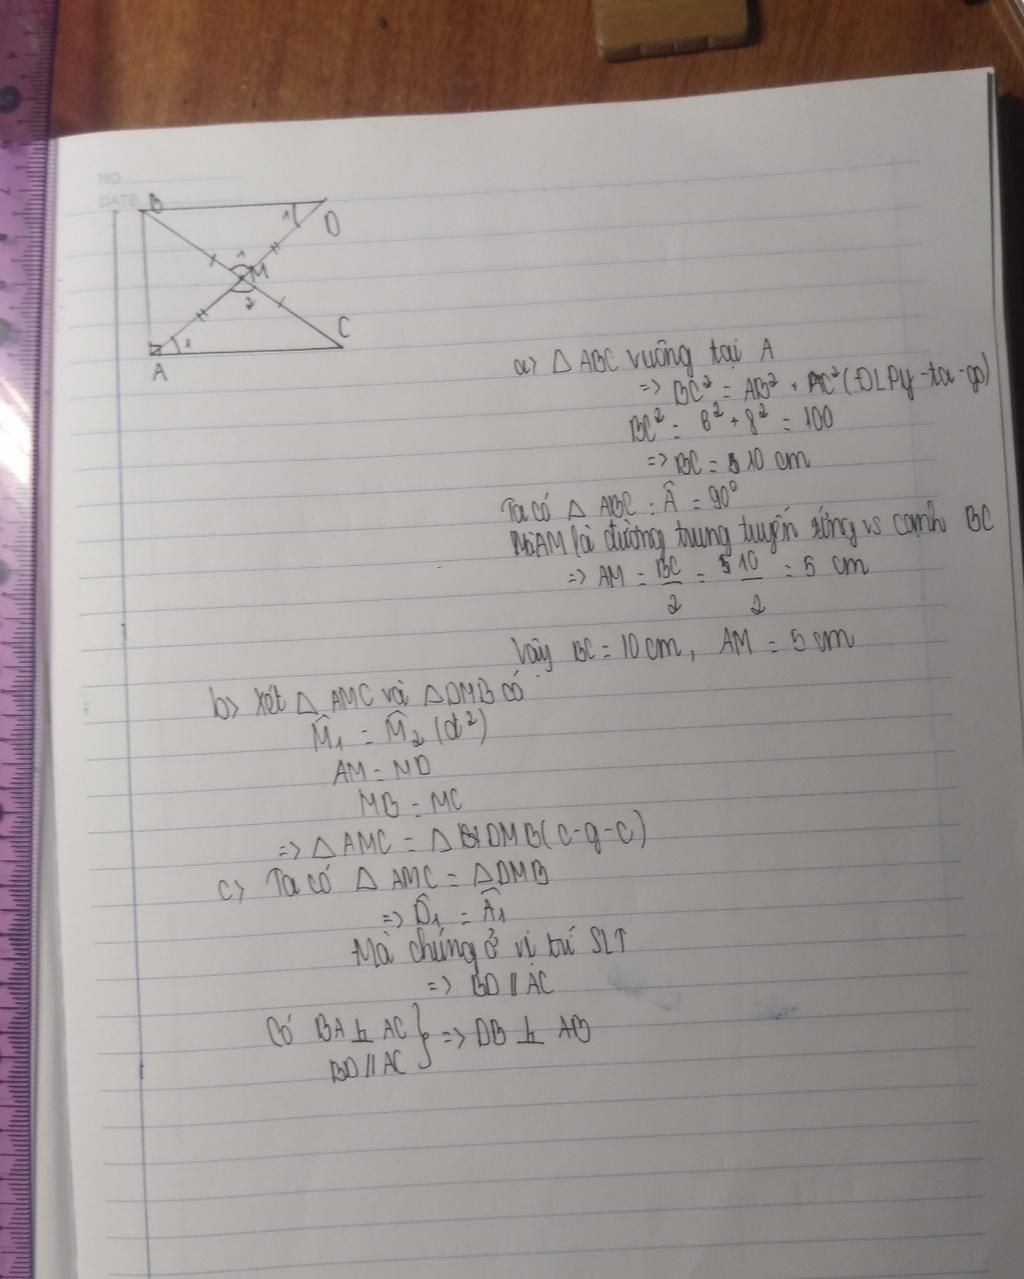 NO
DATE
B
1
D
1
M
2
1
C
A
a) △ ABC vuông tại A
=> BC² = AB² + AC² (ĐLPy-ta-go)
BC² = 6² + 8² = 100
=> BC = 10 cm
Ta có △ ABC : Â = 90°
AM là đường trung tuyến ứng vs cạnh BC
=> AM = BC/2 = 10/2 = 5 cm
Vậy BC = 10 cm, AM = 5 cm
b) Xét △ AMC và △DMB có
M̂₁ = M̂₂ (đ²)
AM = MD
MB = MC
=> △ AMC = △ DMB (c-g-c)
c) Ta có △ AMC = △DMB
=> D̂₁ = Â₁
Mà chúng ở vị trí SLT
=> BD // AC
Có BA ⊥ AC } => DB ⊥ AB
BD // AC